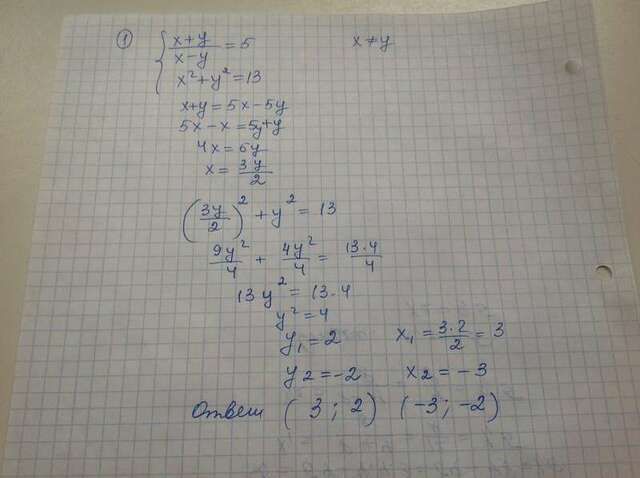 ① { (x+y)/(x-y) = 5 x≠y
x²+y²=13
x+y=5x-5y
5x-x=5y+y
4x=6y
x=3y/2
(3y/2)²+y²=13
9y²/4+4y²/4=13·4/4
13y²=13·4
y²=4
y₁=2 x₁=3·2/2=3
y2=-2 x2=-3
Ответ (3;2) (-3;-2)